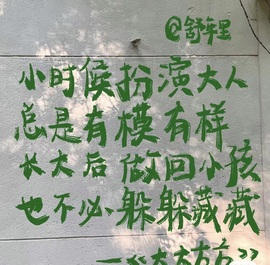 @舒年里
小时候扮演大人
总是有模有样
长大后做回小孩
也不必躲躲藏藏
—《大大方方》